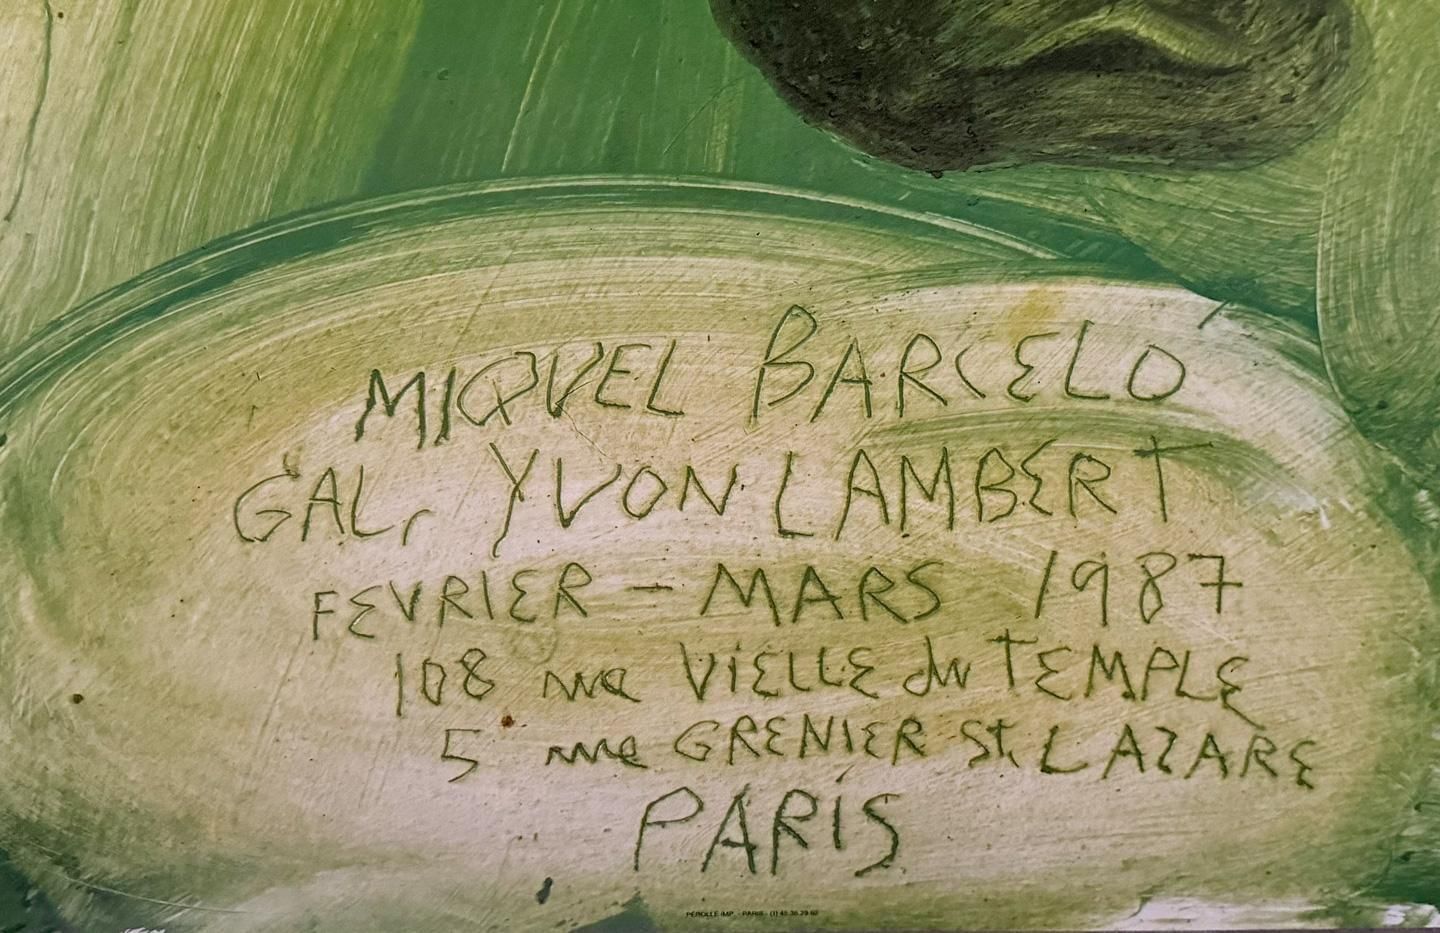 MIQUEL BARCELO
GAL, YVON LAMBERT
FEVRIER - MARS 1987
108 rue VIELLE du TEMPLE
5 rue GRENIER St. LAZARE
PARIS
PEROLLE IMP. - PARIS - (1) 45.36.29.62